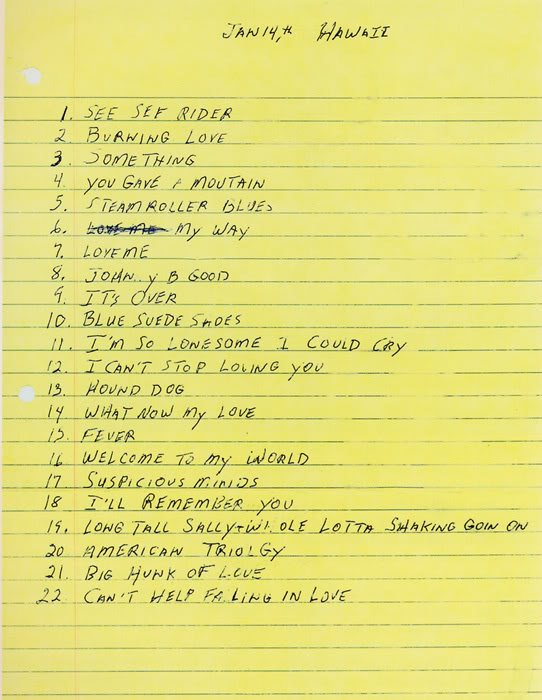 JAN 14,th HAWAII
1. SEE SEE RIDER
2. BURNING LOVE
3. SOMETHING
4. YOU GAVE A MOUTAIN
5. STEAMROLLER BLUES
6. LOVE ME MY WAY
7. LOVE ME
8. JOHN..Y B GOOD
9. IT'S OVER
10. BLUE SUEDE SHOES
11. I'M SO LONESOME I COULD CRY
12. I CAN'T STOP LOVING YOU
13. HOUND DOG
14 WHAT NOW MY LOVE
15. FEVER
16 WELCOME TO MY WORLD
17 SUSPICIOUS MINDS
18 I'LL REMEMBER YOU
19. LONG TALL SALLY-WHOLE LOTTA SHAKING GOIN ON
20 AMERICAN TRIOLGY
21. BIG HUNK OF LOVE
22. CAN'T HELP FALLING IN LOVE